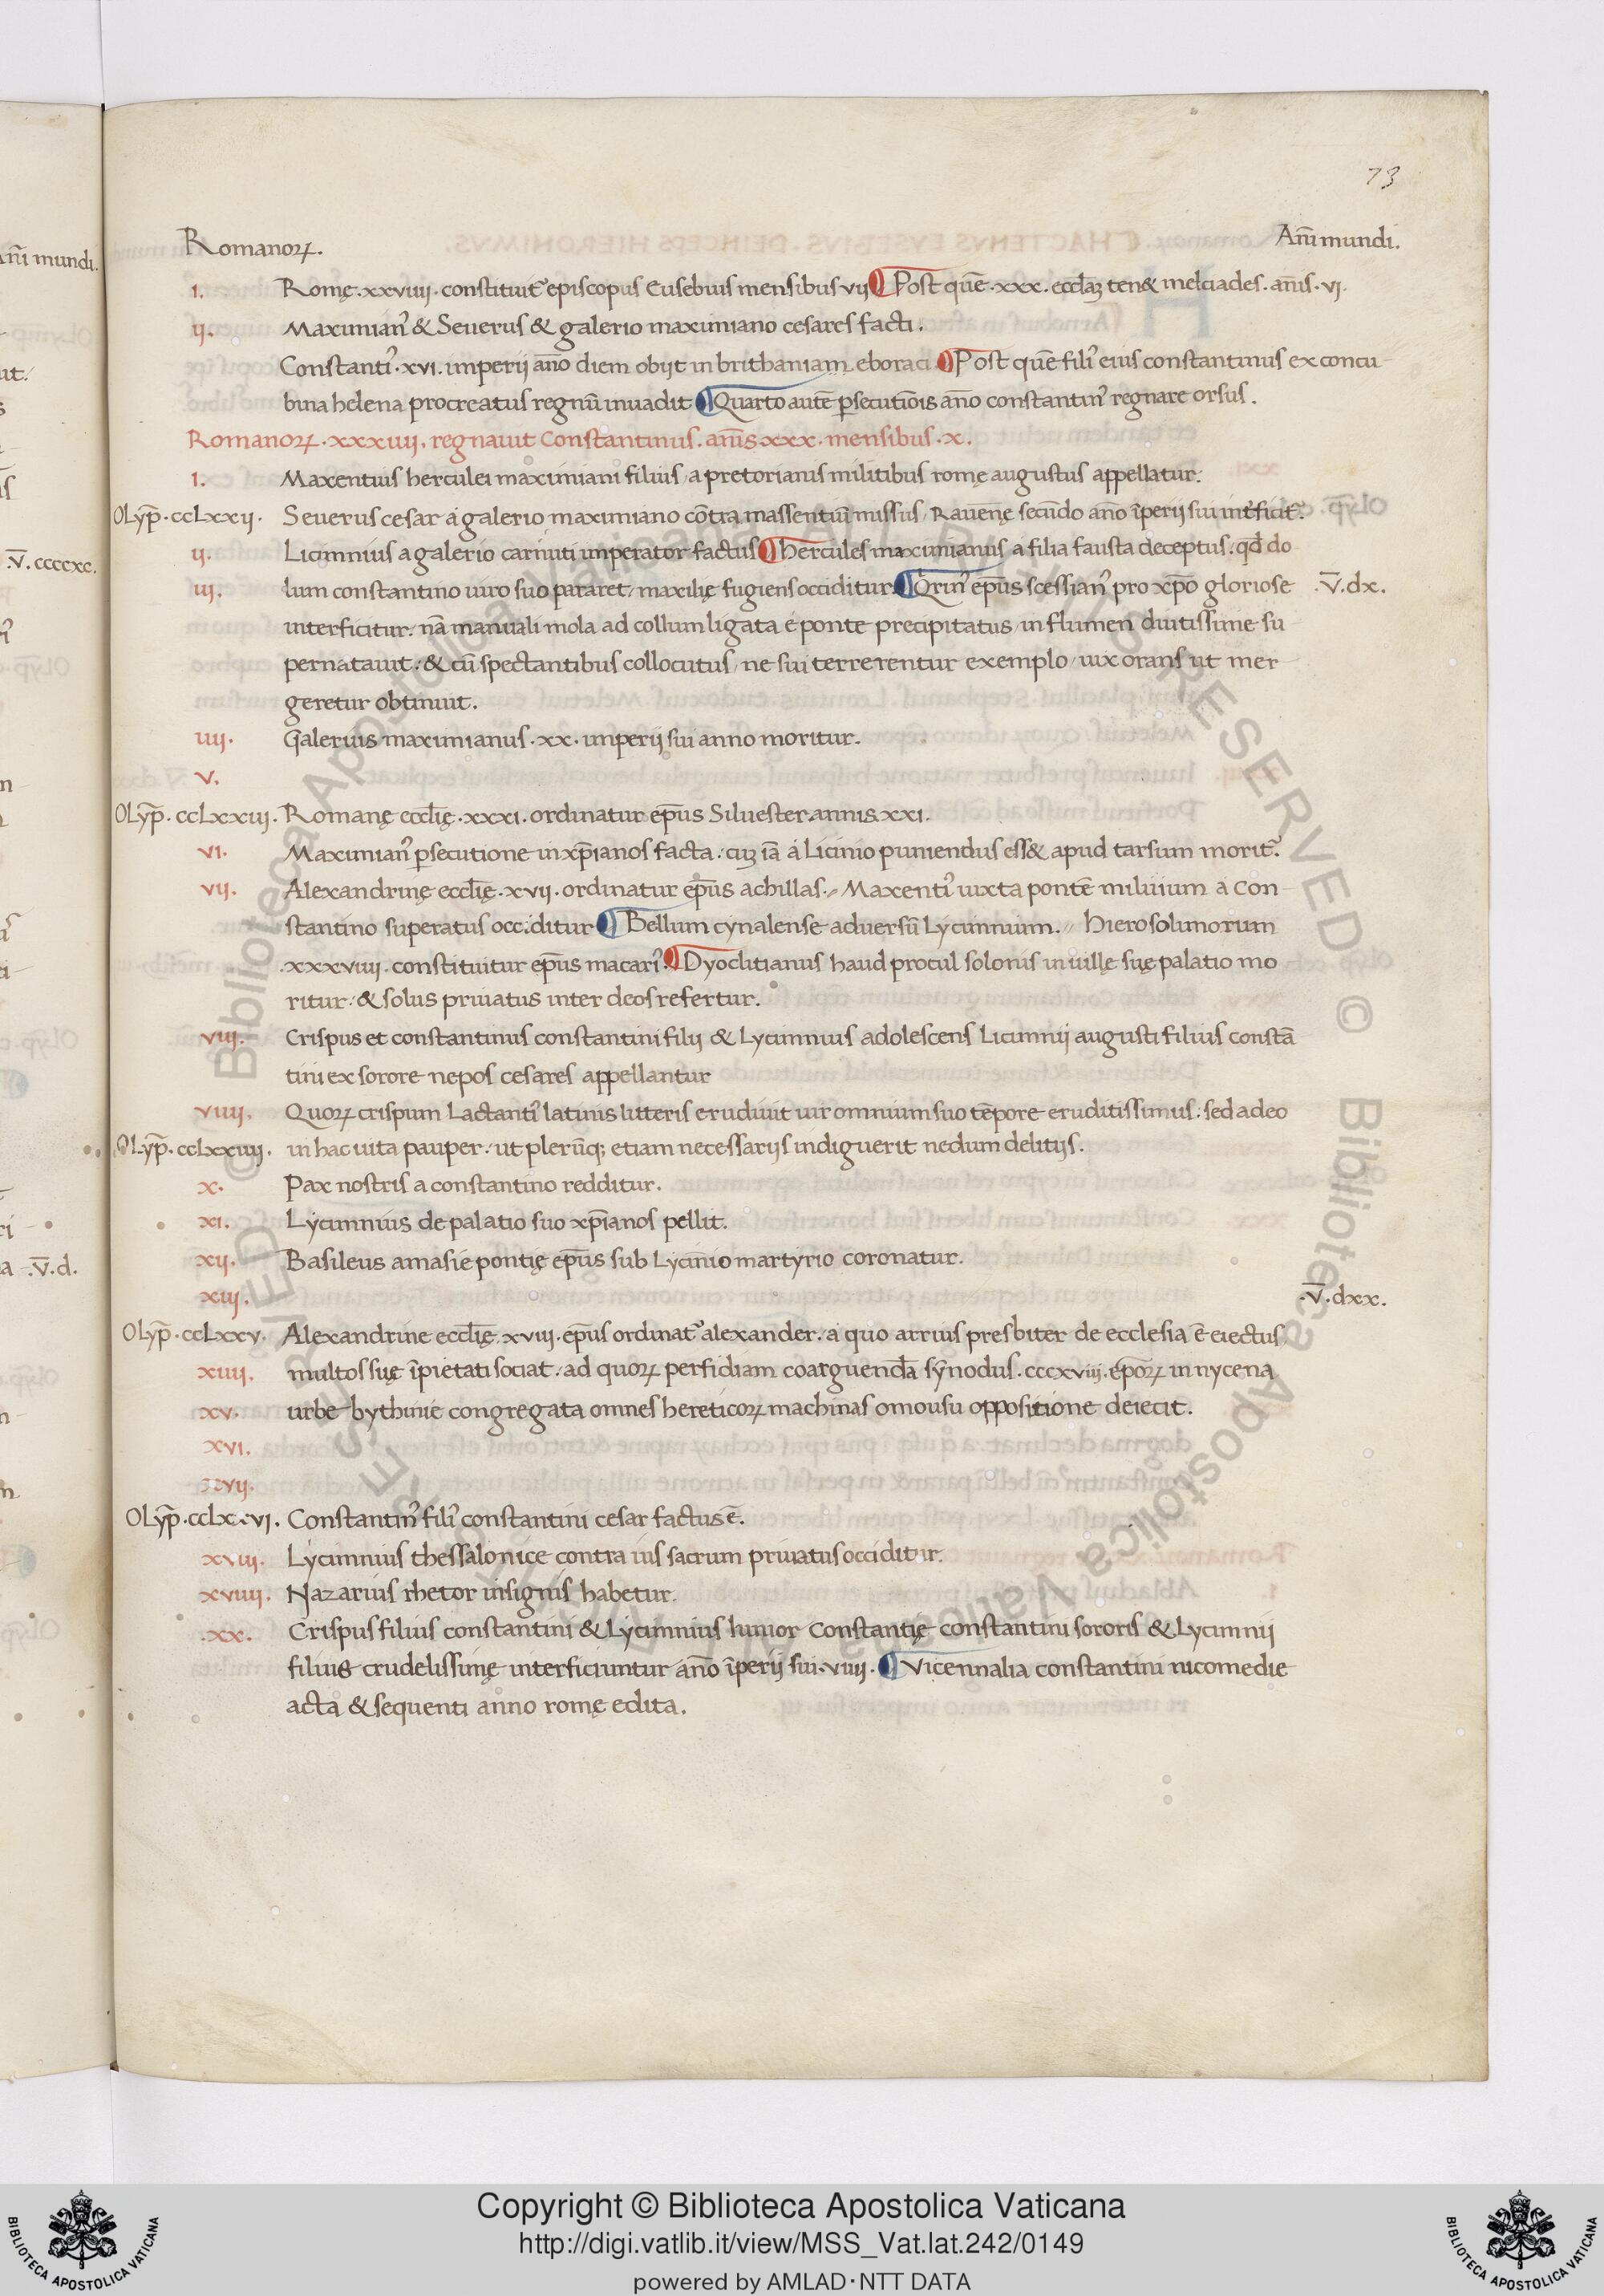 73
Romanoꝝ. Ann̄i mundi.
ı. Romę .xxviiii. constituit᷑ episcopus Eusebius mensibus vii ¶ Post quē .xxx. eccl̄aꝫ ten& melciades. anīs. vi.
ii. Maximian᾽ & Seuerus & galerio maximiano cesares facti.
Constanti᾽ .xvi. imperii an̄o diem obijt in brithaniam eboraci. ¶ Post quē fili᾽ eius constantinus ex concu-
bina helena procreatus regnū inuadit ¶ Quarto autē ꝑsecutiōis an̄o constantin᾽ regnare orsus.
Romanoꝝ .xxxiiii. regnauit Constantinus. anīs .xxx. mensibus .x.
ı. Maxentius herculei maximiani filius, a pretorianis militibus romę augustus appellatur.
Olyp̄. ccLxxii. Seuerus cesar á galerio maximiano cōtra massentiū missus, Rauēnę secūdo an̄o īperii sui int̓ficit᷑.
ii. Licinnius a galerio carnuti imperator factus ¶ hercules maximianus a filia fausta deceptus. qd̄ do-
iii. lum constantino uiro suo pararet, maxilię fugiens occiditur. ¶ Qrin᾽ ep̄us scessian᾽ pro xp̄o gloriose .v̄.dx.
interficitur. nā manuali mola ad collum ligata é ponte precipitatus, in flumen diutissime su-
pernatauit: & cū spectantibus collocutus, ne sui terrerentur exemplo, uix orans ut mer-
geretur obtinuit.
iiii. Galerius maximianus .xx. imperii sui anno moritur.
v.
Olyp̄. ccLxxiii. Romanę eccl̄ię .xxxi. ordinatur ep̄us Siluester. annis. xxi.
vi. Maximian᾽ ꝑsecutione in xp̄ianos facta: cuꝫ iā á Licinio puniendus ess& apud tarsum morit᷑.
vii. Alexandrinę eccl̄ię .xvii. ordinatur ep̄us achillas. Maxenti᾽ iuxta pontē miluium á Con-
stantino superatus occiditur ¶ Bellum cynalense aduersū Lycinnium. Hierosolimorum
.xxxviiii. constituitur ep̄us macari᾽. ¶ Dyoclitianus haud procul solonis in uillę suę palatio mo-
ritur: & solus priuatus inter deos refertur.
viii. Crispus et constantinus constantini filij & Lycinnius adolescens Licinnij augusti filius constā-
tini ex sorore nepos cesares appellantur
viiii. Quoꝝ crispum Lactanti᾽ latinis litteris erudiuit uir omnium suo tēpore eruditissimus: sed adeo
Olyp̄. ccLxxiiii. in hac uita pauper: ut plerūqꝫ etiam necessarijs indiguerit nedum delitijs.
x. Pax nostris a constantino redditur.
xi. Lycinnius de palatio suo xp̄ianos pellit.
xii. Basileus amasie pontię ep̄us sub Lycin̄io martyrio coronatur.
xiii. .v̄.dxx.
Olyp̄. ccLxxv. Alexandrine eccl̄ię .xviii. ep̄us ordinat᷑ alexander. a quo arrius presbiter de ecclesia ē eiectus
xiiii. multos suę īpietati sociat. ad quoꝝ perfidiam coarguendā synodus .cccxviii. ep̄oꝝ in nycena
xv. urbe bythinie congregata omnes hereticoꝝ machinas omousii oppositione deiecit.
xvi.
xvii.
Olyp̄. ccLxxvi. Constantin᾽ fili᾽ constantini cesar factus ē.
xviii. Lycinnius thessalonice contra ius sacrum priuatus occiditur.
xviiii. Nazarius rhetor insignis habetur.
.xx. Crispus filius constantini & Lycinnius Iunior Constantię constantini sororis & Lycinnii
filius crudelissimę interficiuntur an̄o īperij sui .viiii. ¶ Vicennalia constantini nicomedie
acta & sequenti anno romę edita.
Copyright © Biblioteca Apostolica Vaticana
http://digi.vatlib.it/view/MSS_Vat.lat.242/0149
powered by AMLAD·NTT DATA
BIBLIOTECA APOSTOLICA VATICANA
BIBLIOTECA APOSTOLICA VATICANA